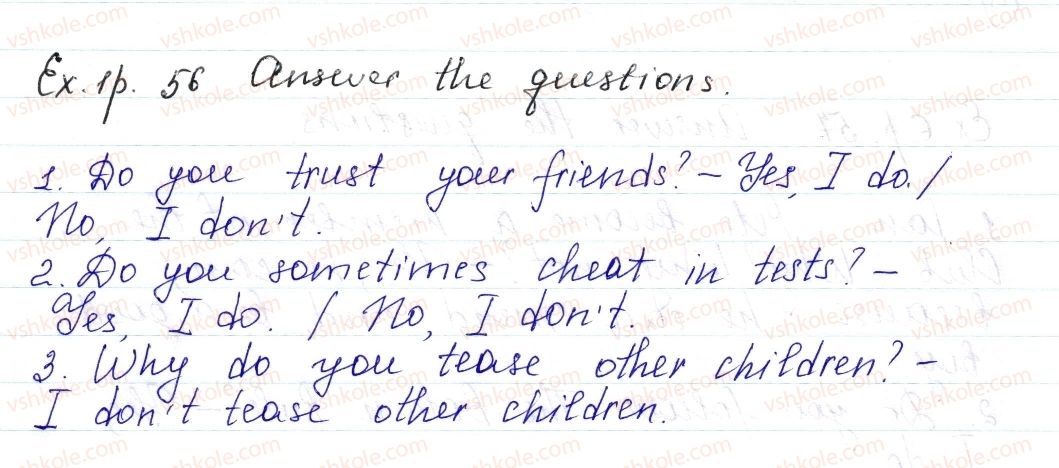 Ex. 1p. 56 Answer the questions.
1. Do you trust your friends? – Yes, I do. /
No, I don't.
2. Do you sometimes cheat in tests? –
Yes, I do. / No, I don't.
3. Why do you tease other children? –
I don't tease other children.